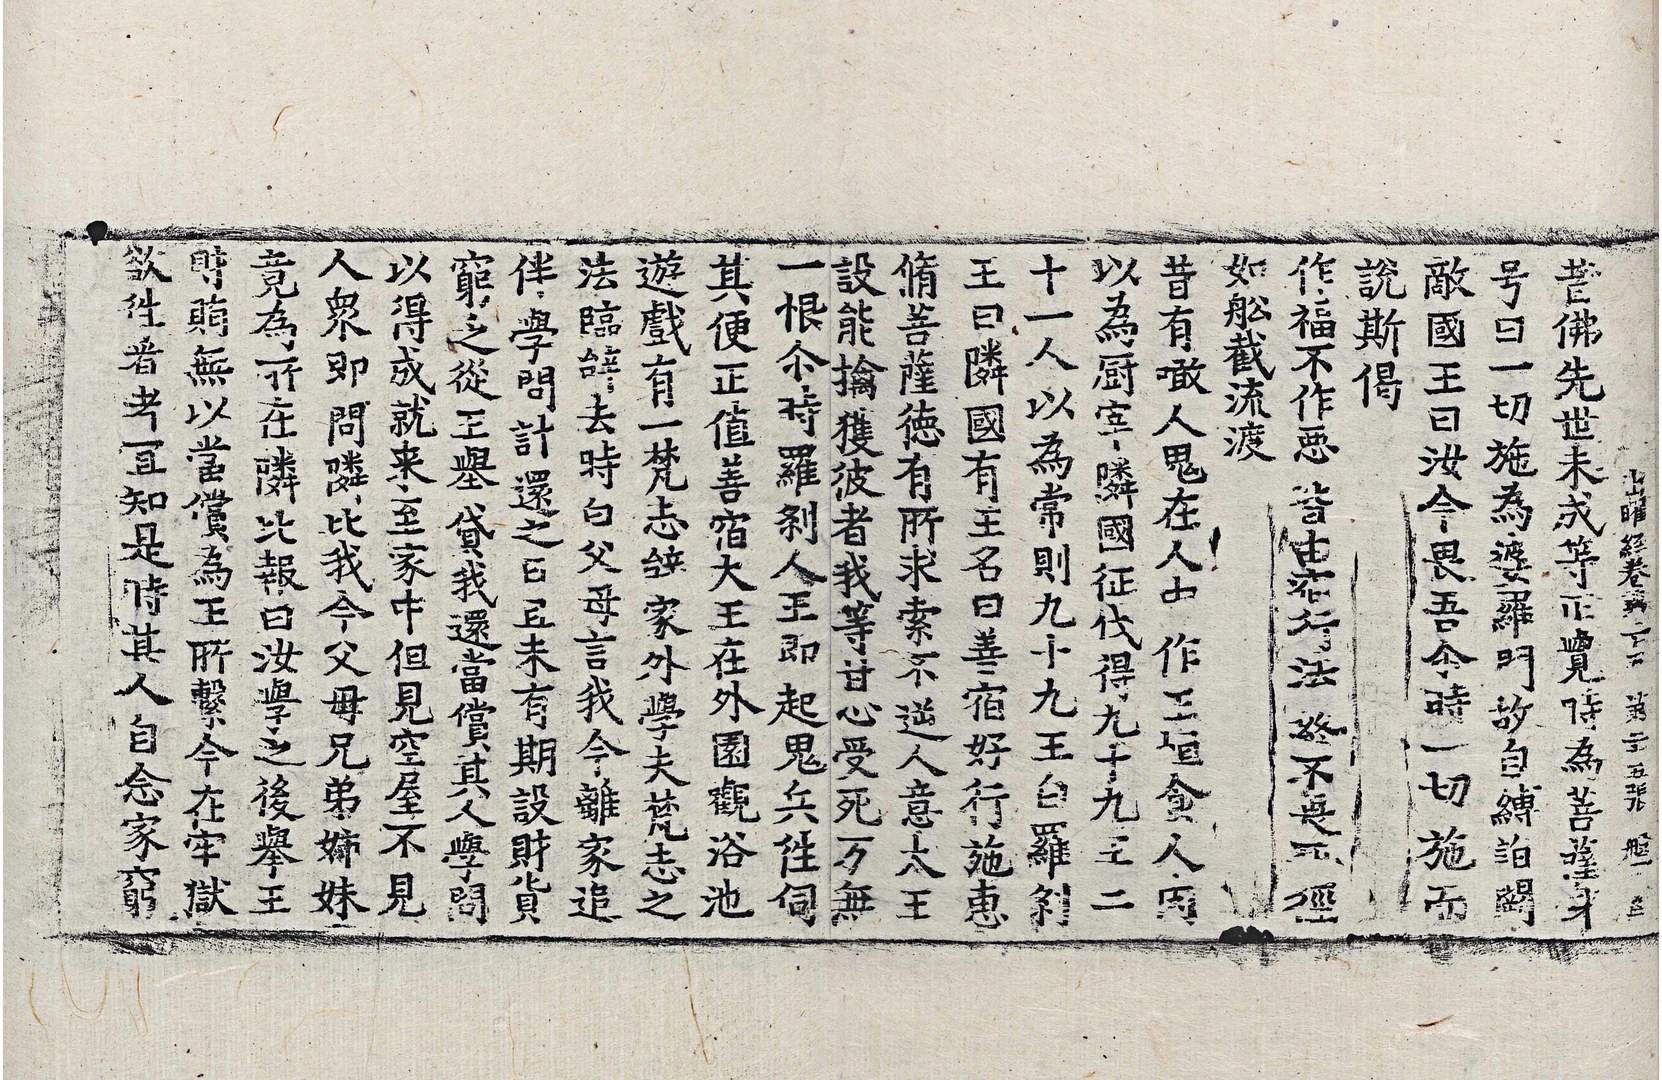 出曜經卷第二十五 第二十五張 盤
昔佛先世未成等正覺時為菩薩身
号曰一切施為婆羅門故自縛詣
敵國王曰汝今畏吾尒時一切施而
說斯偈
作福不作惡 皆由宿行法 終不畏死徑
如舩截流渡
昔有噉人鬼在人中作王恒食人肉
以為厨宰隣國征伐得九十九王二
十一人以為常則九十九王白羅剎
王曰隣國有王名曰善宿好行施惠
脩菩薩德有所求索不逆人意大王
設能擒獲彼者我等甘心受死万無
一恨尒時羅剎人王即起鬼兵往伺
其便正值善宿大王在外園觀浴池
遊戲有一梵志辝家外學夫梵志之
法臨辝去時白父母言我今離家追
伴學問計還之日且未有期設財貨
窮乏從王舉貸我還當償其人學問
以得成就来至家中但見空屋不見
人衆即問隣比我今父母兄弟姊妹
竟為所在隣比報曰汝學之後舉王
財賄無以當償為王所繫今在牢獄
欲往者考宜知是時其人自念家窮